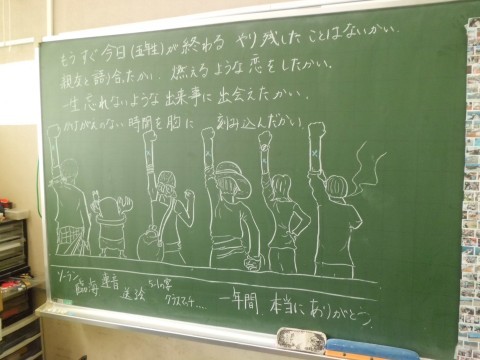 もうすぐ今日(五年生)が終わる やり残したことはないかい。
親友と語り合たかい、燃えるような恋をしたかい。
一生忘れないような出来事に出会えたかい、
かけがえのない時間を胸に刻み込んだかい
ソーラン 臨海 連音 送会 5-1の宴 クラスマッチ....
一年間、本当にありがとう。